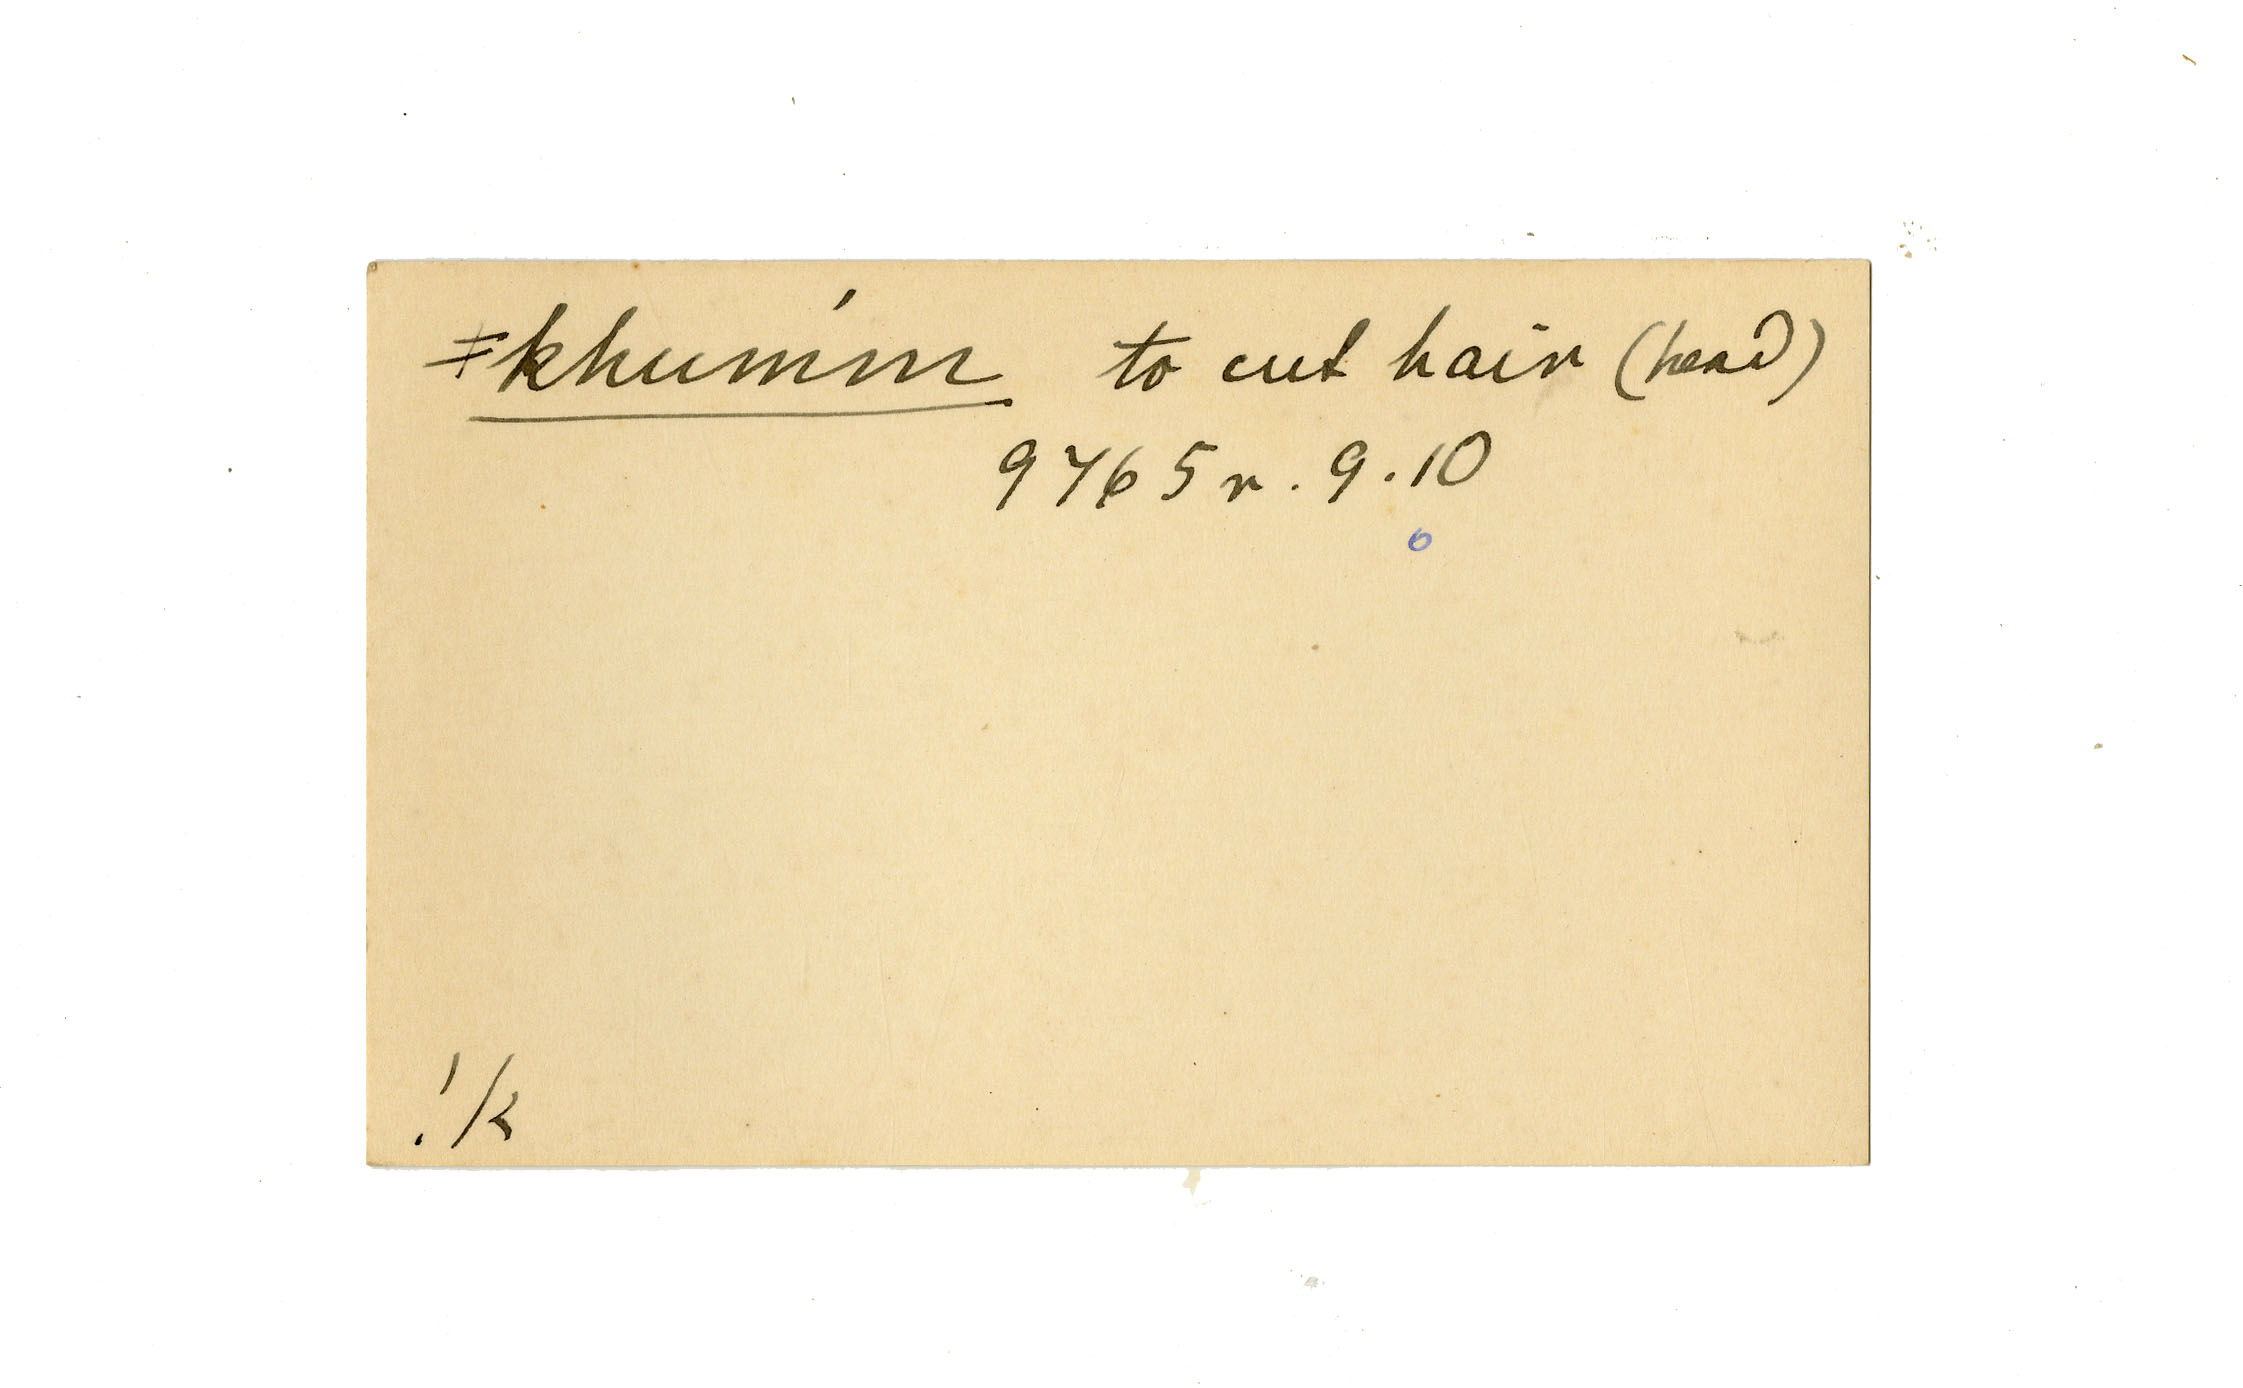 ǂkhum'm to cut hair (head)
9765 r. 9.10
6
!k